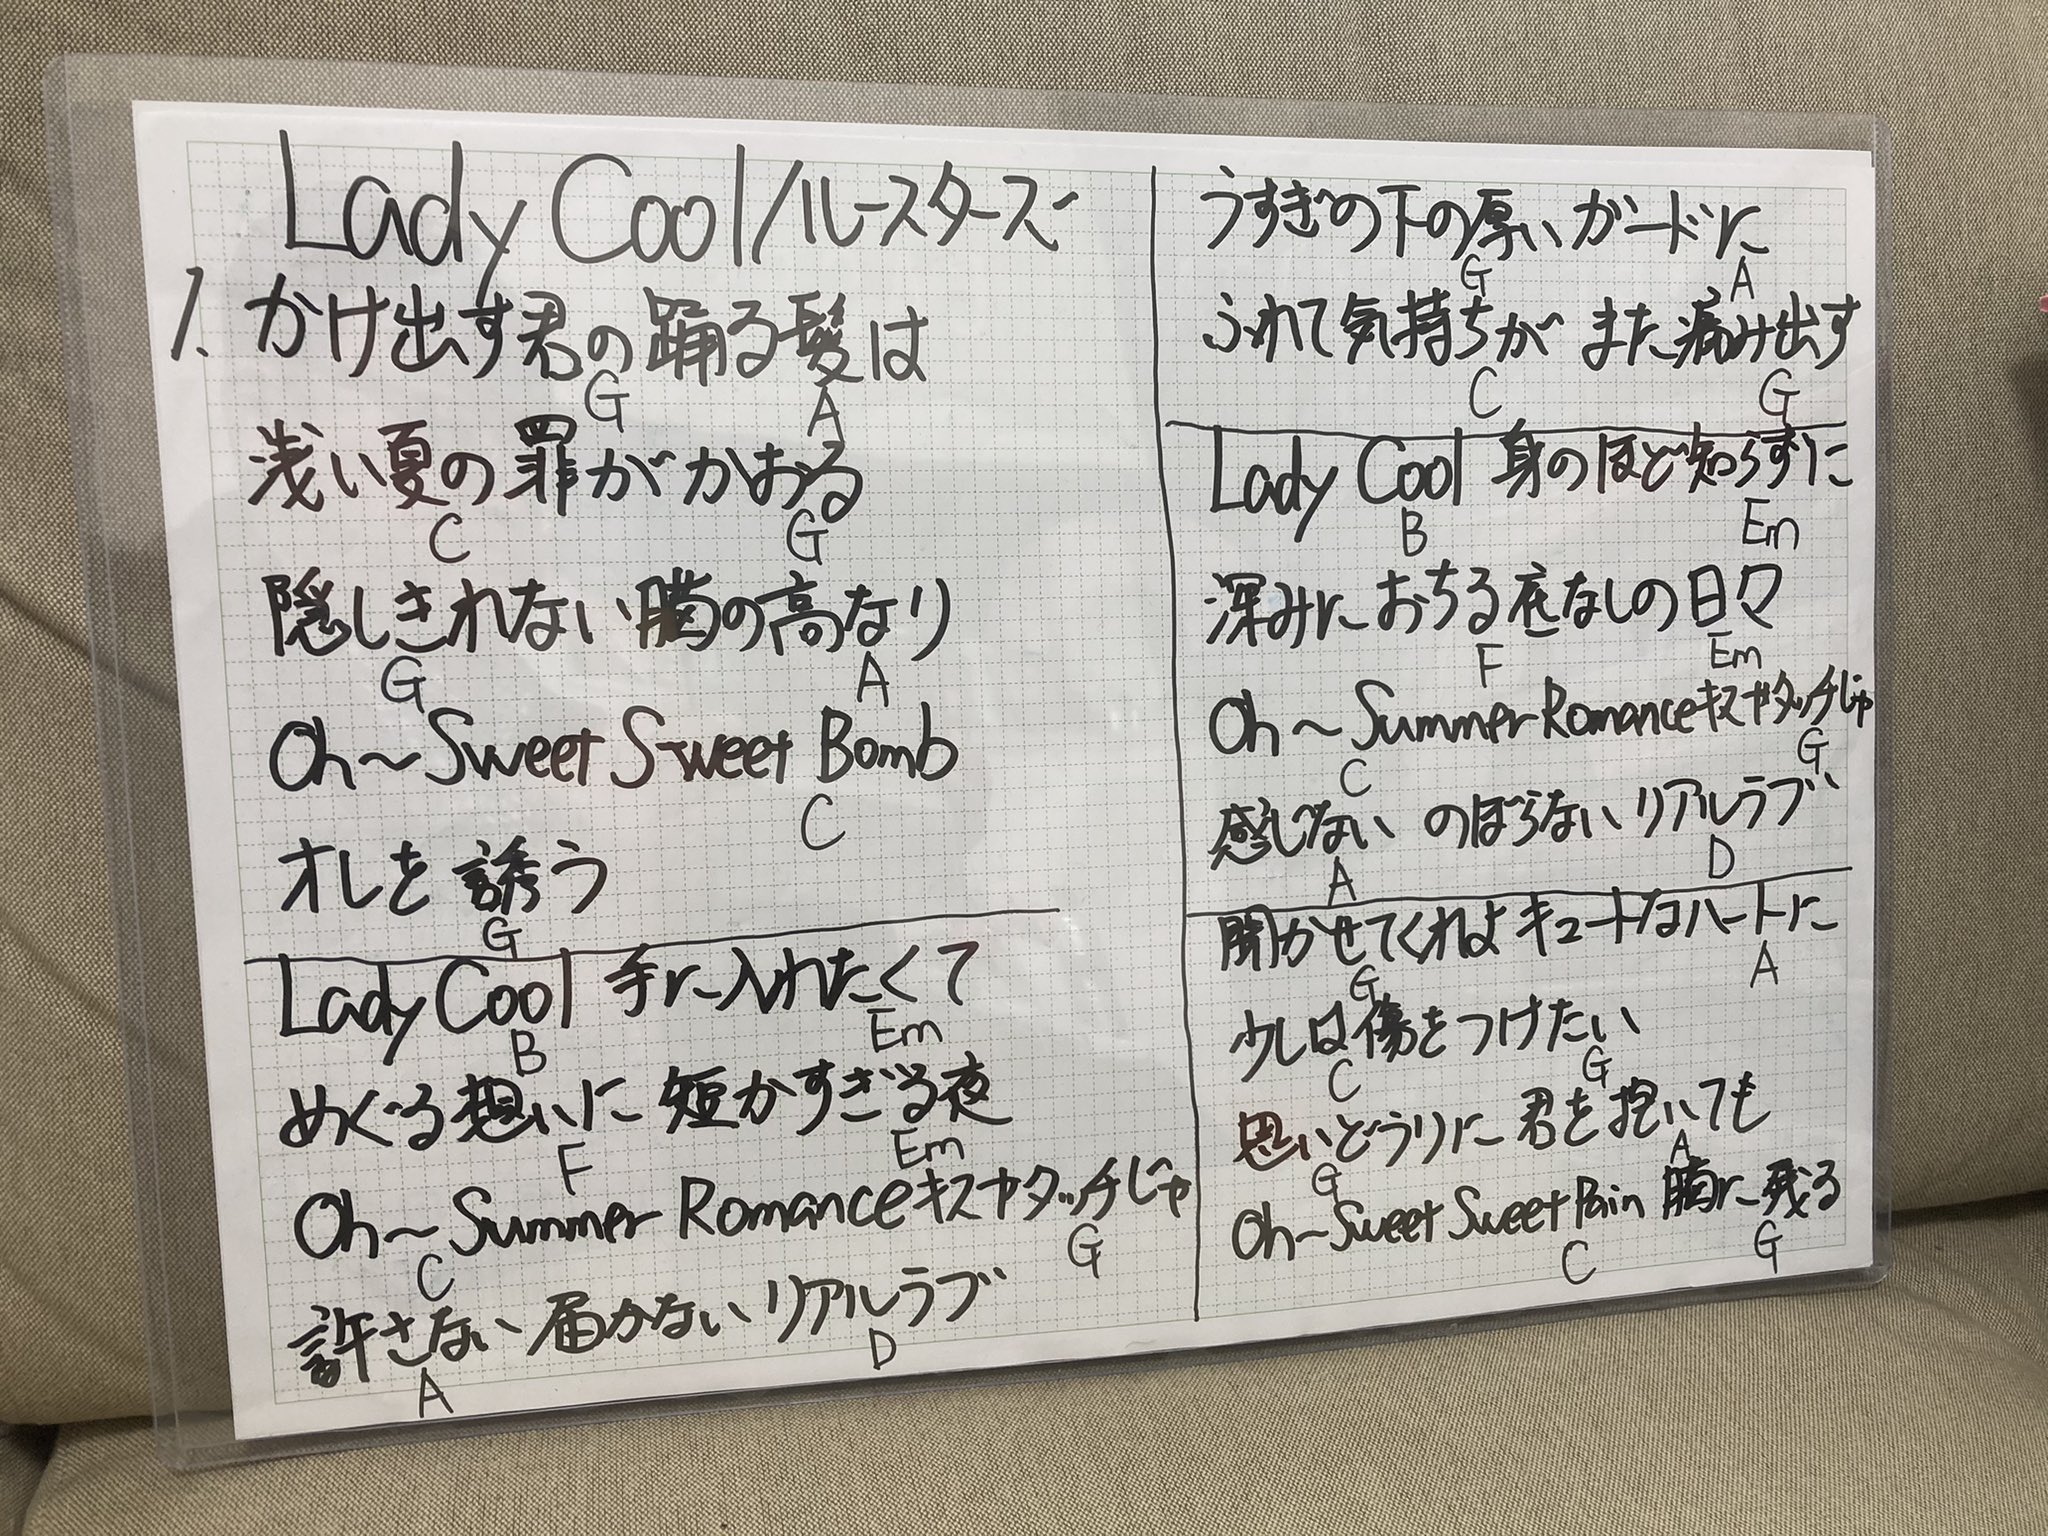 Lady Cool/ルースターズ
1. かけ出す君の踊る髪は
G A
浅い夏の罪がかおる
C G
隠しきれない胸の高なり
G A
Oh〜Sweet Sweet Bomb
C
オレを誘う
G
Lady Cool 手に入れたくて
B Em
めぐる想いに 短かすぎる夜
F Em
Oh〜Summer Romanceキスやタッチじゃ
C G
許さない 届かない リアルラブ
A D
うすぎの下の厚いガードに
G A
ふれて気持ちが また痛み出す
C G
Lady Cool 身のほど知らずに
B Em
深みに おちる 底なしの日々
F Em
Oh〜Summer Romanceキスやタッチじゃ
C G
感じない のぼらない リアルラブ
A D
聞かせてくれよ キュートなハートに
G A
少しは傷をつけたい
C G
思いどうりに 君を抱いても
G A
Oh〜Sweet Sweet Pain 胸に残る
C G